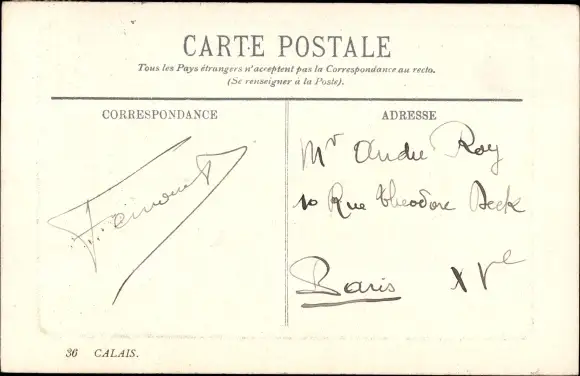 CARTE POSTALE
Tous les Pays étrangers n'acceptent pas la Correspondance au recto.
(Se renseigner à la Poste).
CORRESPONDANCE
ADRESSE
Mr André Roy
10 Rue théodore Deck
Paris XVe
36 CALAIS.